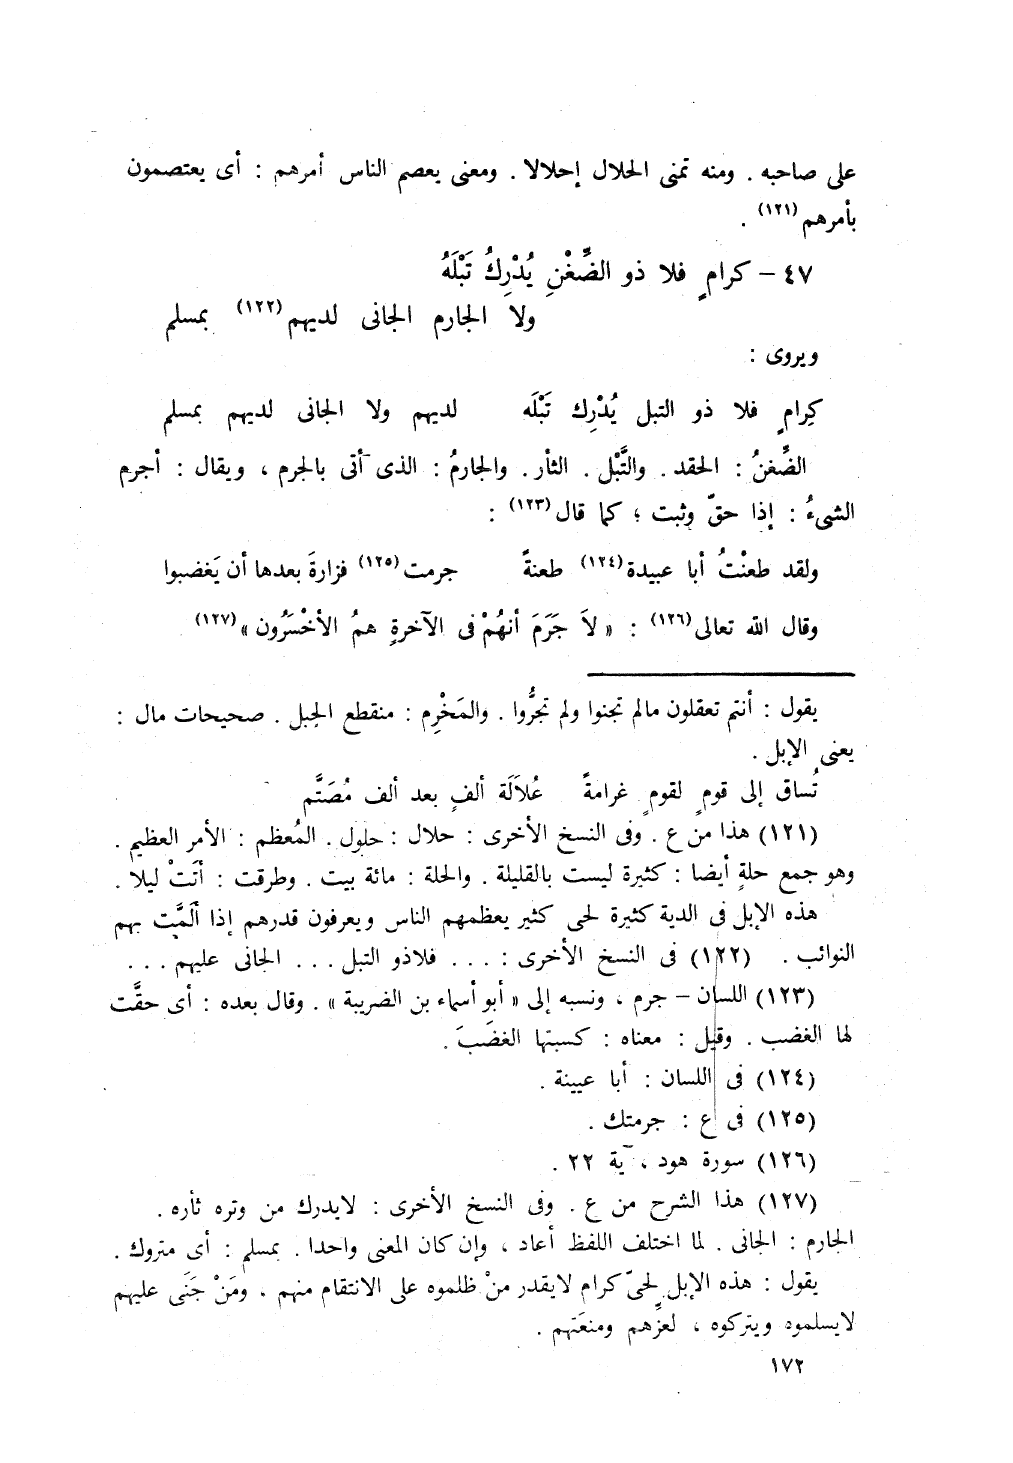 على صاحبه . ومنه تمنى الحلال إحلالا . ومعنى يعصم الناس أمرهم : أى يعتصمون
بأمرهم (١٢١) .
٤٧ – كرامٍ فلا ذو الضِّغْنِ يُدْرِكُ تَبْلَهُ
ولا الجارم الجانى لديهم (١٢٢) بمسلم
ويروى :
كِرامٍ فلا ذو التبل يُدْرِك تَبْلَه لديهم ولا الجانى لديهم بمسلم
الضِّغنُ : الحقد . والتَّبْل . الثأر . والجارمُ : الذى أتى بالجرم ، ويقال : أجرم
الشىءُ : إذا حقّ وثبت ؛ كما قال (١٢٣) :
ولقد طعنْتُ أبا عبيدة (١٢٤) طعنةً جرمت (١٢٥) فزارةَ بعدها أن يَغضبوا
وقال الله تعالى (١٢٦) : « لاَ جَرَمَ أنهُمْ فى الآخرةِ همُ الأخْسَرُون » (١٢٧)
يقول : أنتم تعقلون مالم تجنوا ولم تجرُّوا . والمَخْرِم : منقطع الجبل . صحيحات مال :
يعنى الإبل .
تُساق إلى قومٍ لقومٍ غرامةً عُلاَلَة ألفٍ بعد ألف مُصَتَّم
(١٢١) هذا من ع . وفى النسخ الأخرى : حلال : حلول . المُعظم : الأمر العظيم .
وهو جمع حلةٍ أيضا : كثيرة ليست بالقليلة . والحلة : مائة بيت . وطرقت : أتَتْ ليلا .
هذه الإبل فى الدية كثيرة لحى كثير يعظمهم الناس ويعرفون قدرهم إذا ألمَّت بهم
النوائب . (١٢٢) فى النسخ الأخرى : . . . فلاذو التبل . . . الجانى عليهم . . .
(١٢٣) اللسان – جرم ، ونسبه إلى « أبو أسماء بن الضريبة » . وقال بعده : أى حقَّت
لها الغضب . وقيل : معناه : كسبتها الغضَبَ .
(١٢٤) فى اللسان : أبا عيينة .
(١٢٥) فى ع : جرمتك .
(١٢٦) سورة هود ، آية ٢٢ .
(١٢٧) هذا الشرح من ع . وفى النسخ الأخرى : لايدرك من وتره ثأره .
الجارم : الجانى . لما اختلف اللفظ أعاد ، وإن كان المعنى واحدا . بمسلم : أى متروك .
يقول : هذه الإبل لحىّ كرام لايقدر منْ ظلموه على الانتقام منهم ، ومَنْ جَنَى عليهم
لايسلموه ويتركوه ، لعزِّهم ومنعَتهم .
١٧٢